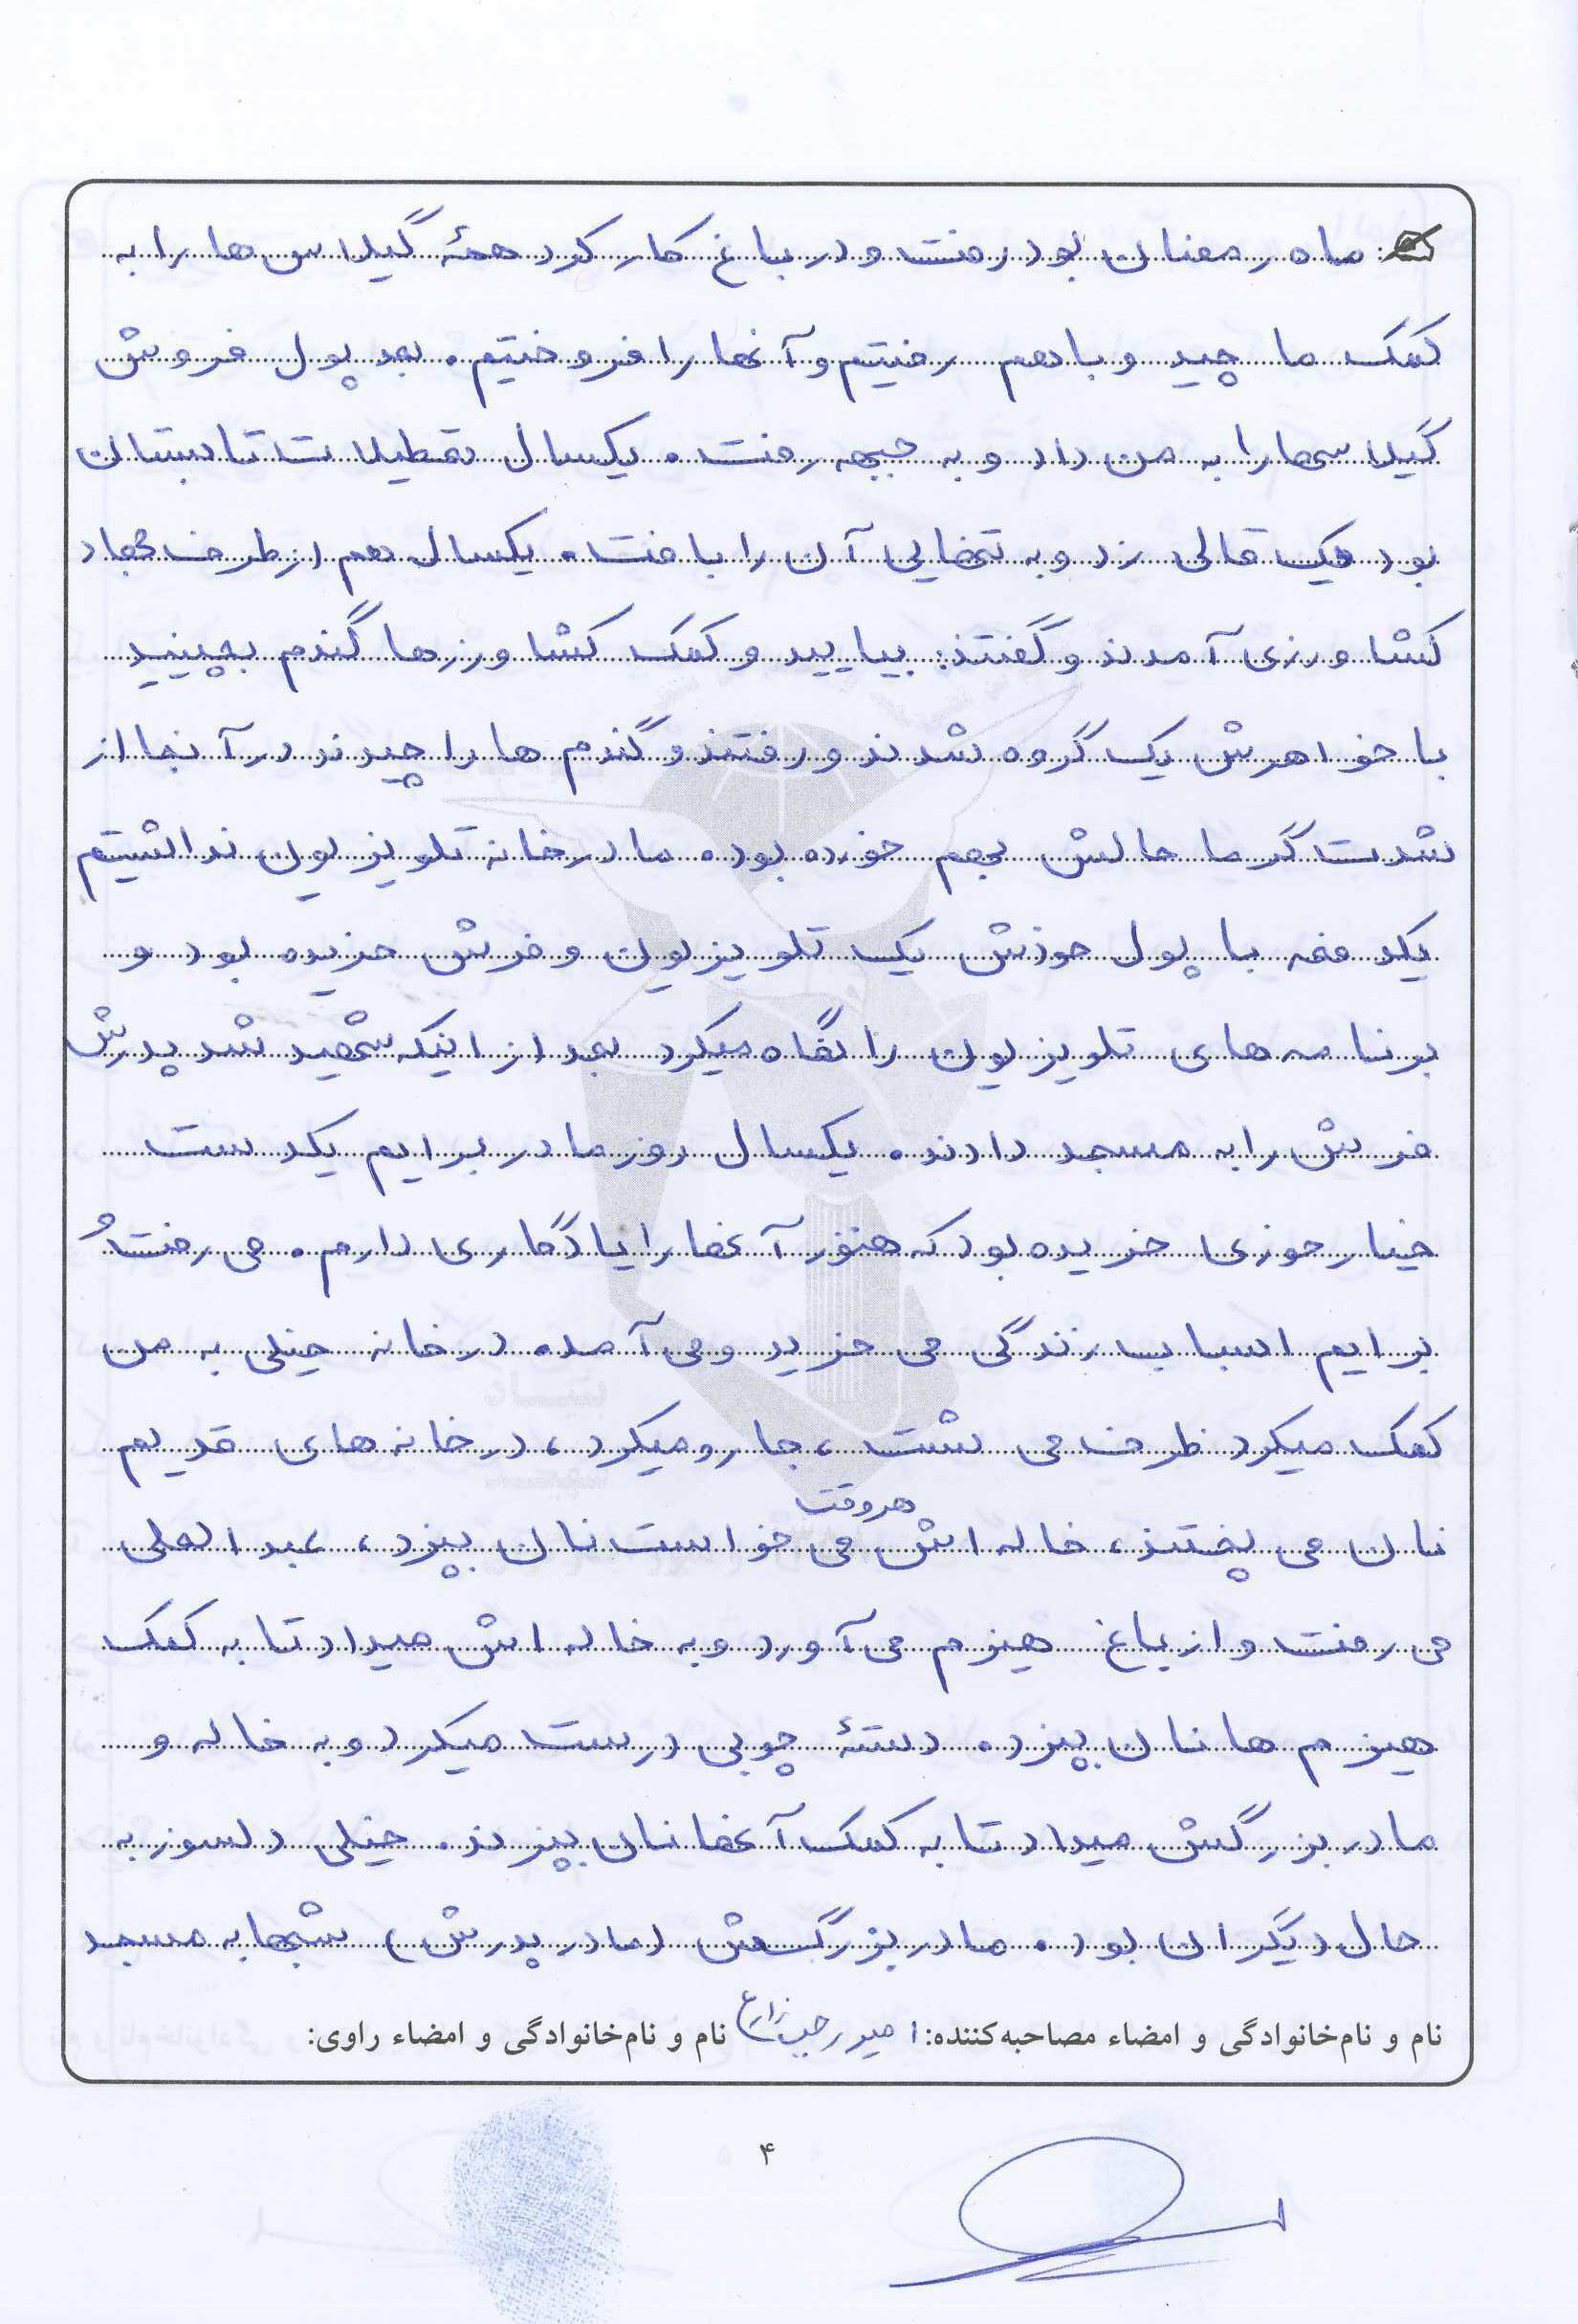 ماه رمضان بود رفت و در باغ کار کرد همهٔ گیلاس ها را به
کمک ما چید و باهم رفتیم و آنها را فروختیم. بعد پول فروش
گیلاسها را به من داد و به جبهه رفت. یکسال تعطیلات تابستان
بود یک قالی زد و به تنهایی آن را بافت. یکسال هم از طرف جهاد
کشاورزی آمدند و گفتند: بیایید و کمک کشاورزها گندم بچینید
با خواهرش یک گروه شدند و رفتند و گندم ها را چیدند در آنجا از
شدت گرما حالش بهم خورده بود. ما در خانه تلویزیون نداشتیم
یکدفعه با پول خودش یک تلویزیون و فرش خریده بود و
برنامه های تلویزیون را نگاه میکرد بعد از اینکه شهید شد پدرش
فرش را به مسجد دادند. یکسال روز مادر برایم یکدست
خیارخوری خریده بود که هنوز آنها را یادگاری دارم. می رفت و
برایم اسباب زندگی می خرید و می آمد. در خانه خیلی به من
کمک میکرد ظرف می شست، جارو میکرد، در خانه های قدیم
نان می پختند، خاله اش هروقت می خواست نان بپزد، عبدالعلی
می رفت و از باغ هیزم می آورد و به خاله اش میداد تا به کمک
هیزم ها نان بپزد. دستهٔ چوبی درست میکرد و به خاله و
مادربزرگش میداد تا به کمک آنها نان بپزند. خیلی دلسوز به
حال دیگران بود. مادربزرگش (مادر پدرش) شبها به مسجد
نام و نام‌خانوادگی و امضاء مصاحبه‌کننده: نام و نام‌خانوادگی و امضاء راوی:
۴